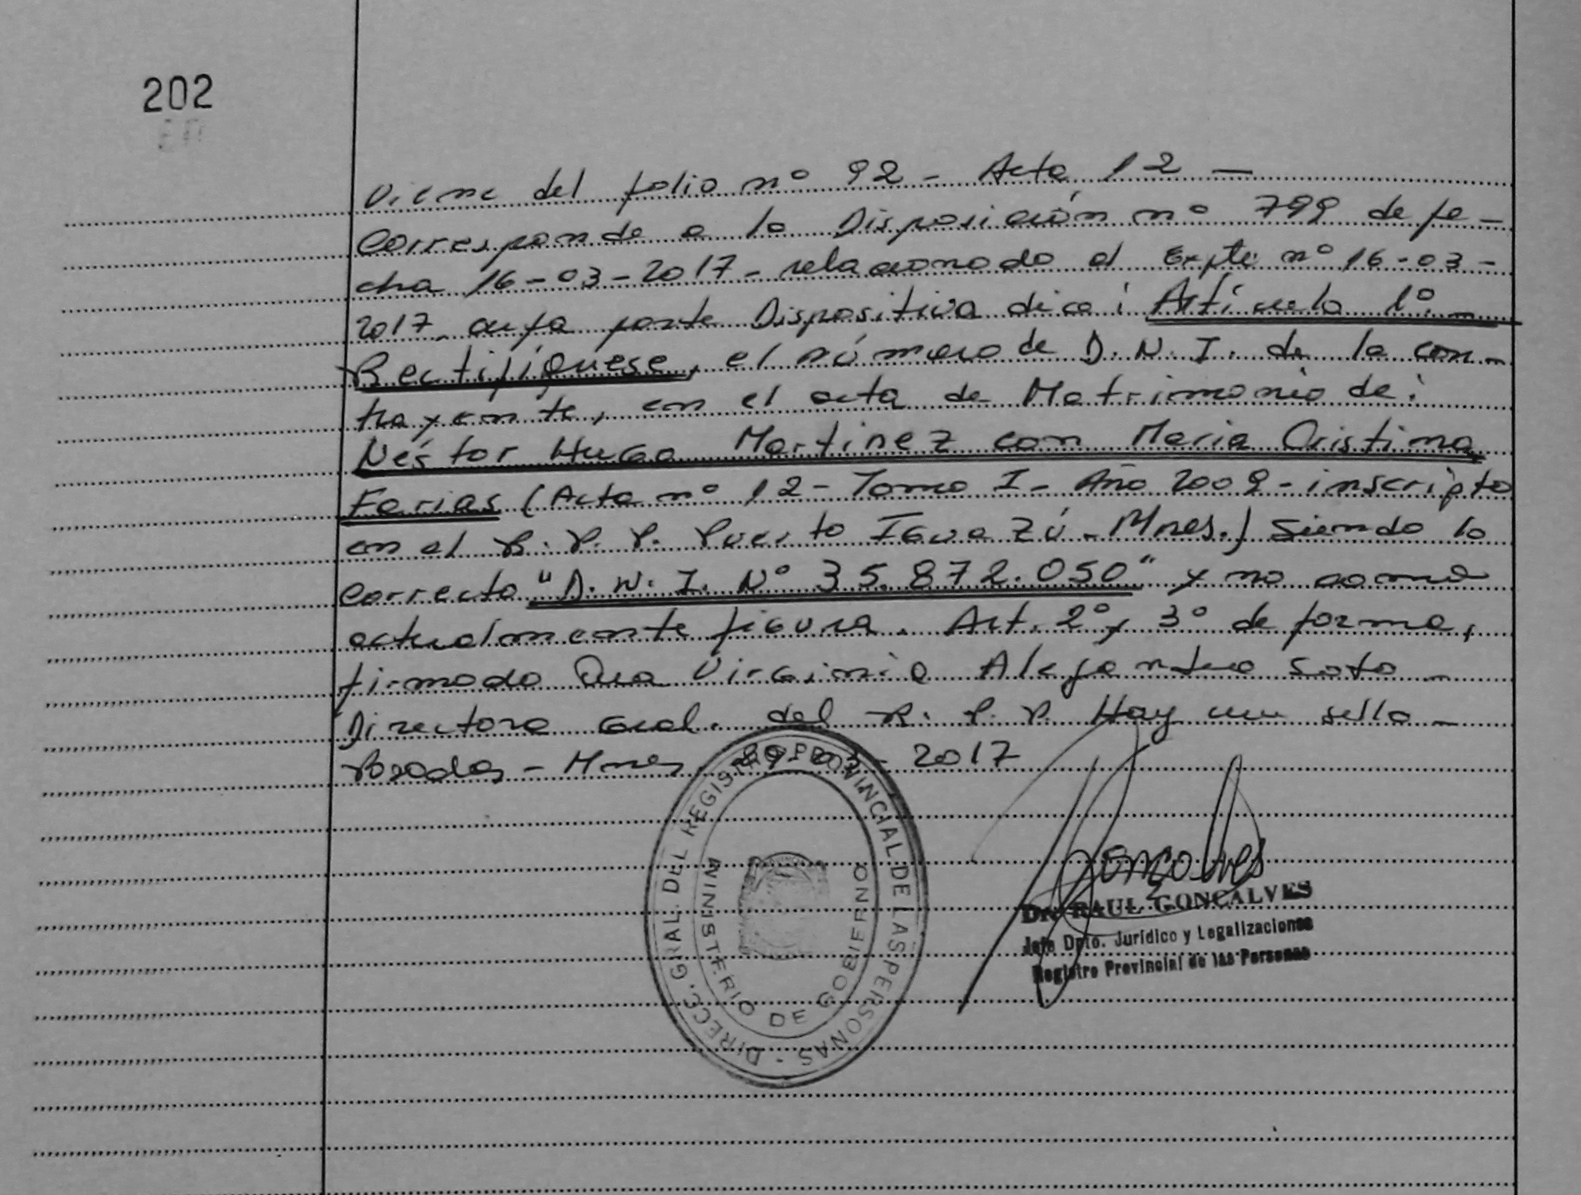 202
Viene del folio nº 92 - Acta 12 —
Corresponde a la Disposición nº 799 de fe-
cha 16-03-2017- relacionado al Expte nº 16-03-
2017- cuya parte Dispositiva dice: Artículo 1º.-
Rectifíquese, el número de D.N.I. de la con-
trayente, en el acta de Matrimonio de:
Néstor Hugo Martinez con Maria Cristina
Farias (Acta nº 12- Tomo I- Año 2009- inscripto
en el R.P.P. Puerto Iguazú- Mnes.) Siendo lo
correcto "D.N.I. Nº 35.872.050" y no como
actualmente figura. Art. 2º y 3º de forma,
firmado Dra Virginia Alejandra Soto -
Directora Gral. del R.P.P. Hay un sello -
Posadas - Mnes 29-03- 2017
DIRECC. GRAL. DEL REGISTRO PROVINCIAL DE LAS PERSONAS -
MINISTERIO DE GOBIERNO
Gonçalves
Dr. RAUL GONÇALVES
Jefe Dpto. Jurídico y Legalizaciones
Registro Provincial de las Personas